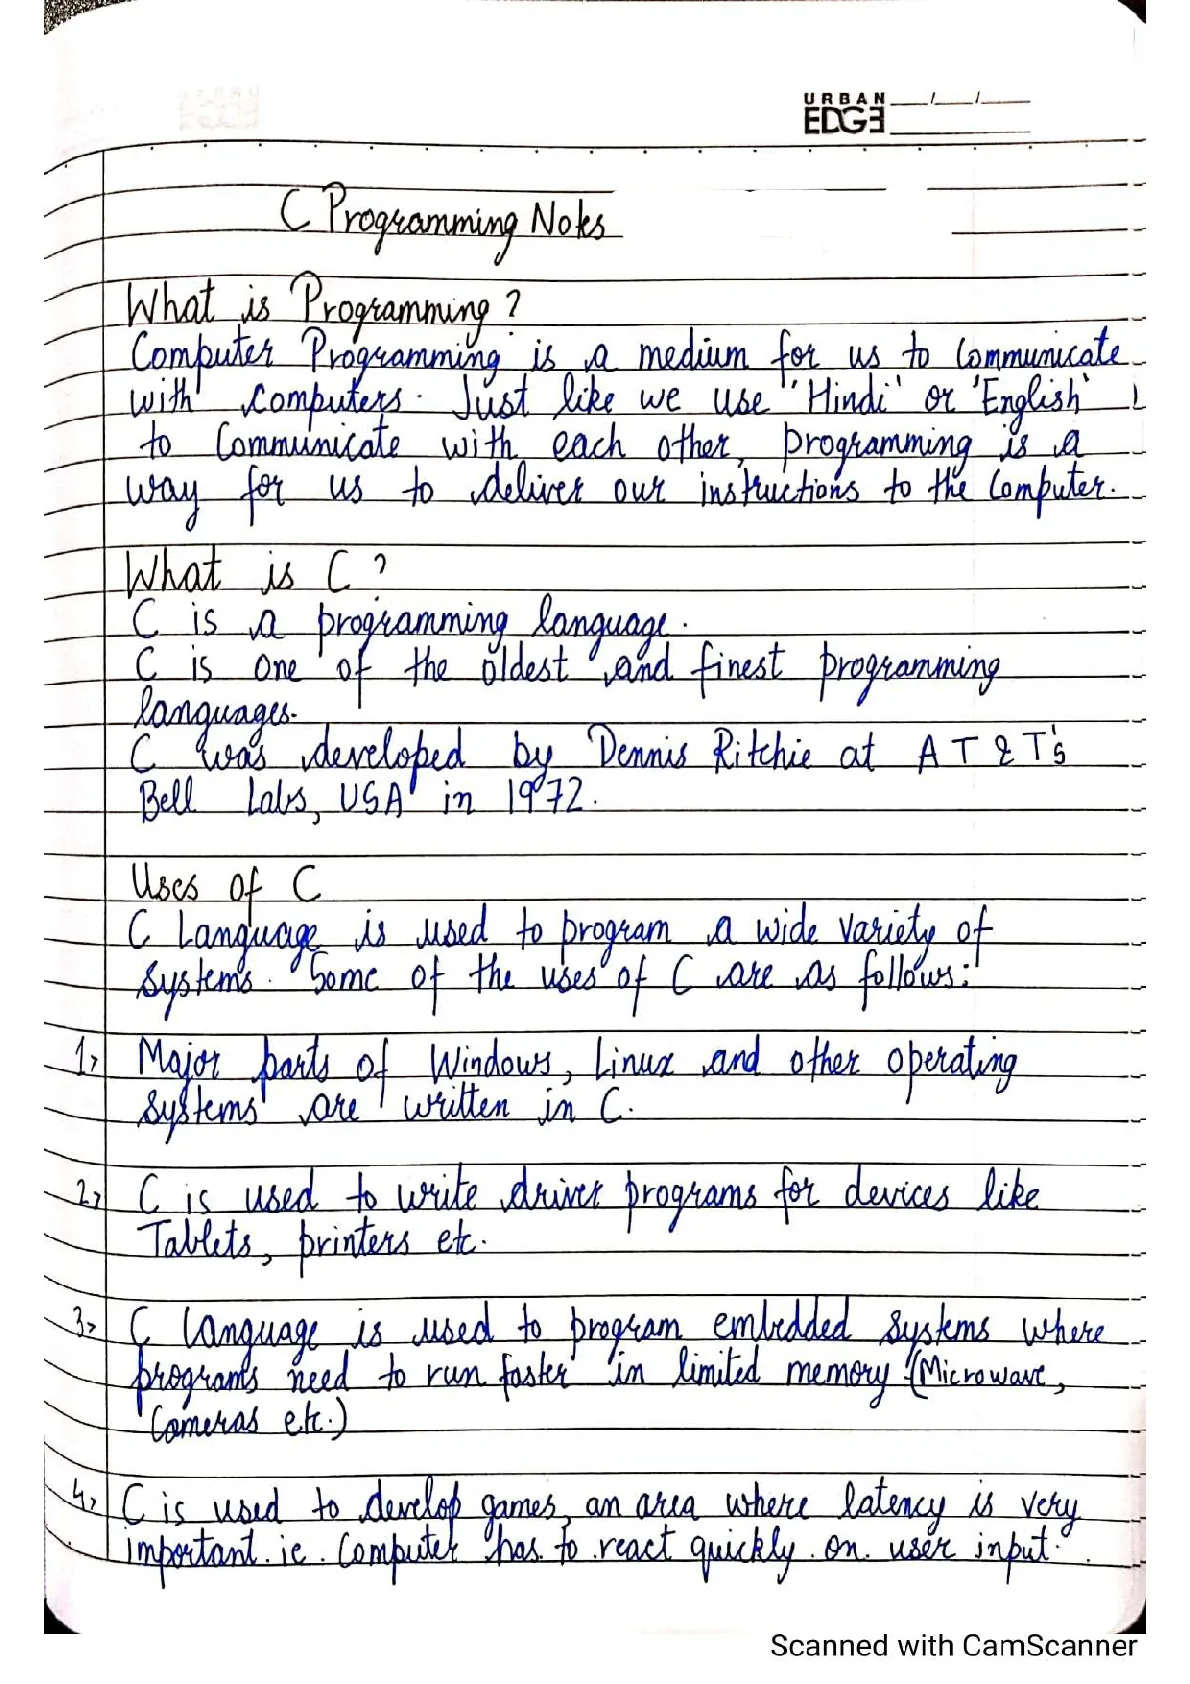 URBAN
EDGE
C Programming Notes
What is Programming?
Computer Programming is a medium for us to Communicate
with computers. Just like we use 'Hindi' or 'English'
to Communicate with each other, programming is a
way for us to deliver our instructions to the Computer.
What is C?
C is a programming language.
C is one of the oldest and finest programming
languages.
C was developed by Dennis Ritchie at AT&T's
Bell Labs, USA in 1972.
Uses of C
C Language is used to program a wide variety of
systems. Some of the uses of C are as follows:
1> Major parts of Windows, Linux and other operating
systems are written in C.
2> C is used to write driver programs for devices like
Tablets, printers etc.
3> C language is used to program embedded systems where
programs need to run faster in limited memory (Microwave,
Cameras etc.)
4> C is used to develop games, an area where latency is very
important. ie. Computer has to react quickly on user input.
Scanned with CamScanner